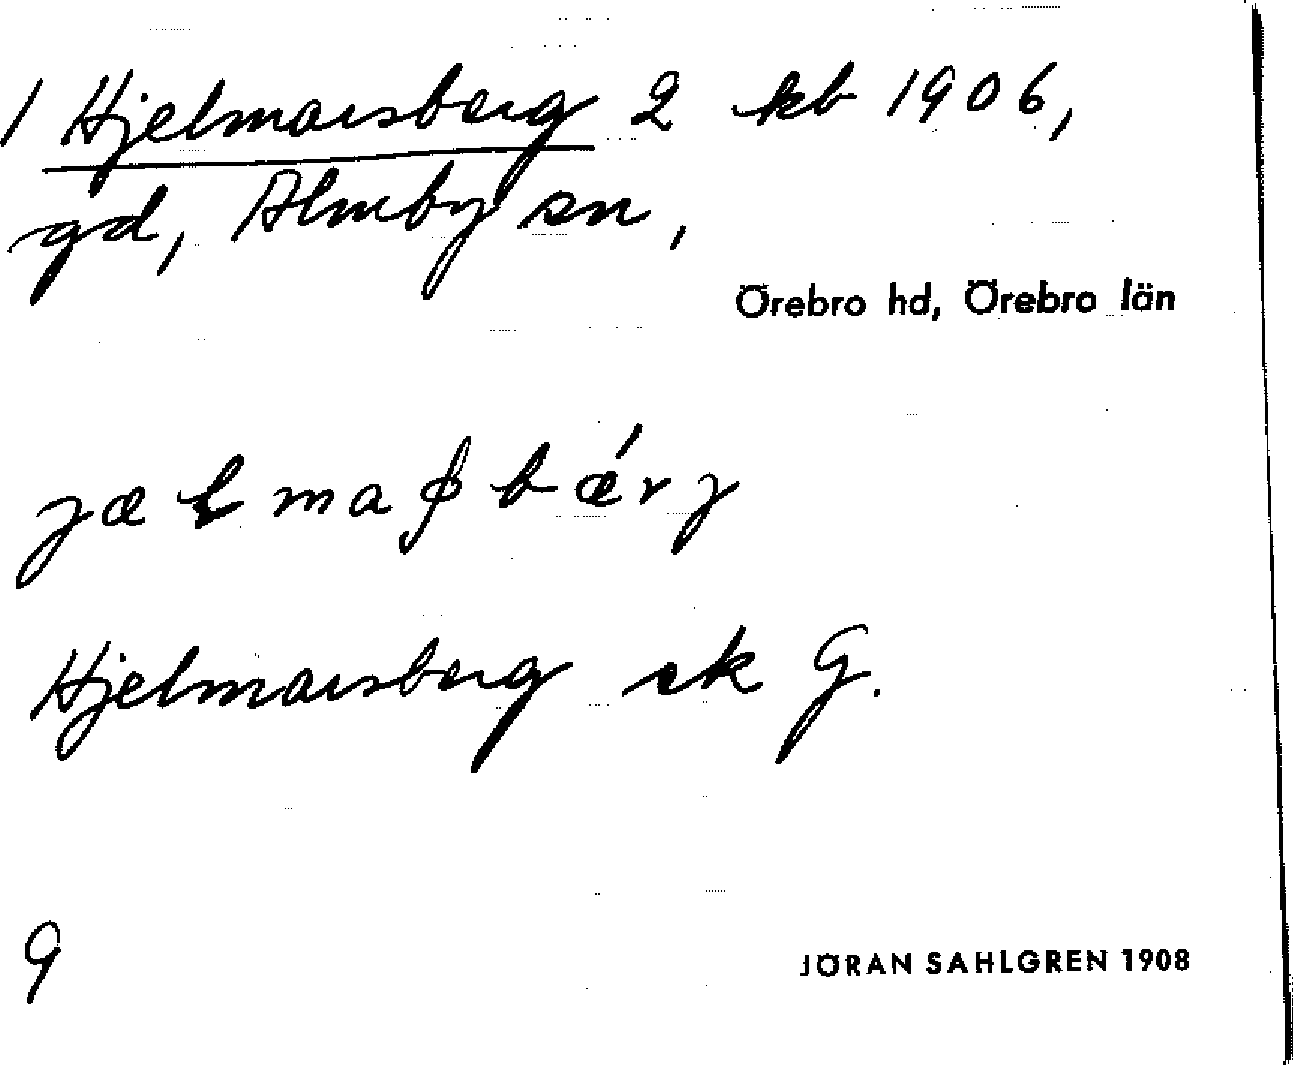 1 Hjelmarsberg 2 kb 1906,
gd, Almby sn,
Örebro hd, Örebro län
Hjelmarsberg ek G.
9
JÖRAN SAHLGREN 1908